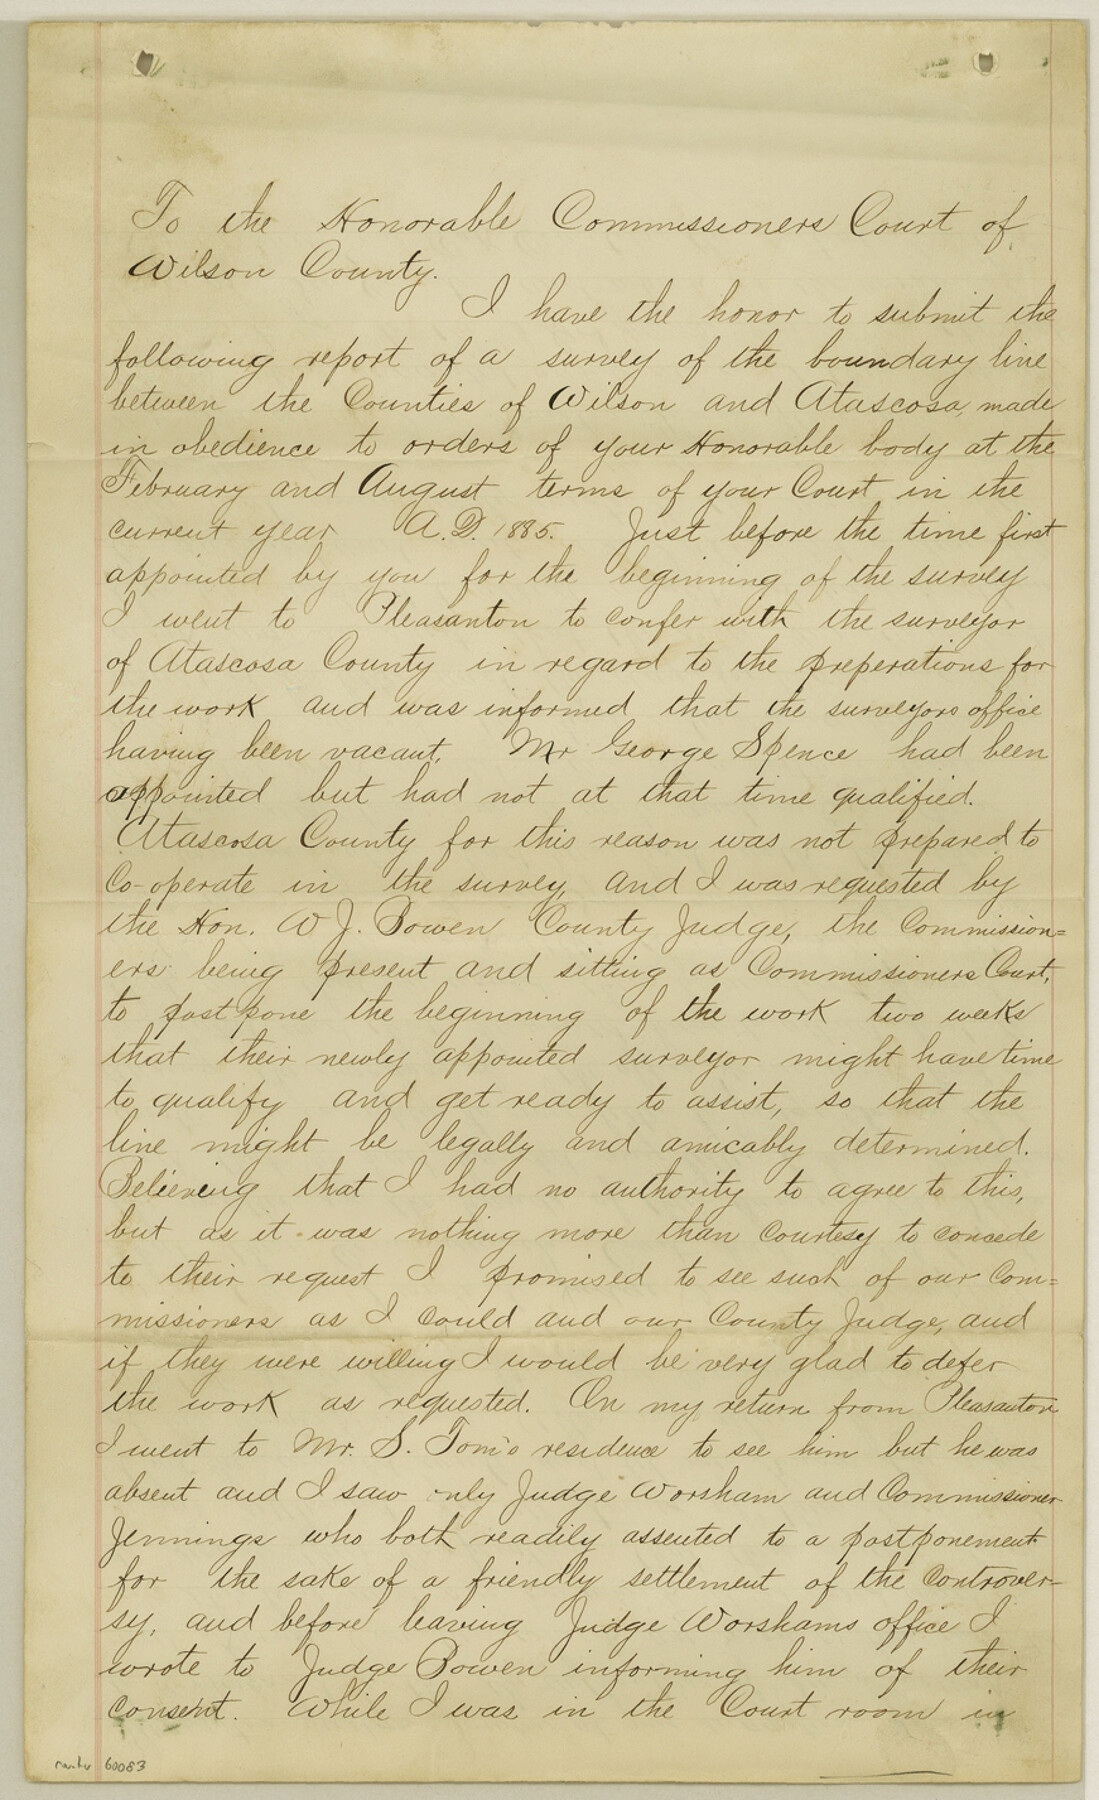 To the Honorable Commissioners Court of
Wilson County.
I have the honor to submit the
following report of a survey of the boundary line
between the Counties of Wilson and Atascosa, made
in obedience to orders of your Honorable body at the
February and August terms of your Court in the
current year A.D. 1885. Just before the time first
appointed by you for the beginning of the survey
I went to Pleasanton to confer with the surveyor
of Atascosa County in regard to the preperations for
the work and was informed that the surveyors office
having been vacant, Mr George Spence had been
appointed but had not at that time qualified.
Atascosa County for this reason was not prepared to
Co-operate in the survey, and I was requested by
the Hon. W J. Bowen County Judge, the Commission=
ers being present and sitting as Commissioners Court,
to postpone the beginning of the work two weeks
that their newly appointed surveyor might have time
to qualify and get ready to assist, so that the
line might be legally and amicably determined.
Believing that I had no authority to agree to this,
but as it was nothing more than courtesy to concede
to their request I promised to see such of our Com=
missioners as I could and our County Judge, and
if they were willing I would be very glad to defer
the work as requested. On my return from Pleasanton
I went to Mr. S. Tom's residence to see him but he was
absent and I saw only Judge Worsham and Commissioner
Jennings who both readily assented to a postponement
for the sake of a friendly settlement of the controver-
sy, and before leaving Judge Worshams office I
wrote to Judge Bowen informing him of their
consent. While I was in the Court room in
60083